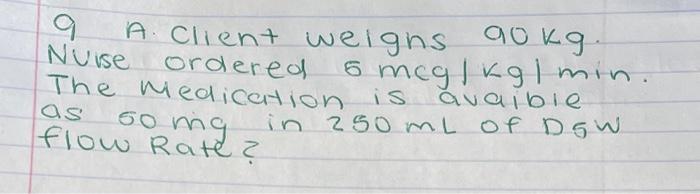 9 A. Client weighs 90 kg.
Nurse ordered 5 mcg/kg/min.
The medication is avaible
as 50 mg in 250 mL of D5W
flow Rate?